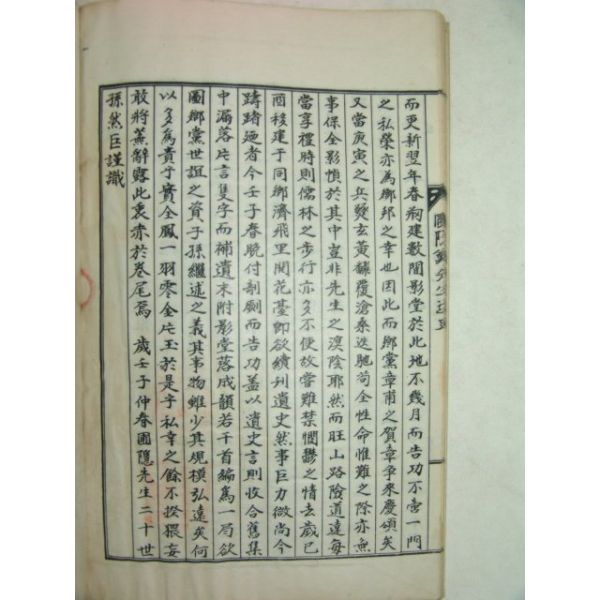 而更新翌年春刱建數間影堂於此地不幾月而告功不啻一門
之私榮亦為鄉邦之幸也因此而鄉黨章甫之賀章爭來慶頌矣
又當庚寅之兵燹玄黃飜覆滄桑迭馳苟全性命惟難之際亦無
事保全影幀於其中豈非先生之漠陰耶然而旺山路險道遠每
當享禮時則儒林之步行亦多不便故嘗難禁憫鬱之情去歲已
酉移建于同鄉濟飛里開花臺即欲續刊遺史然事巨力微尚今
躊躇廼者今壬子春晚付剞劂而告功盖以遺史言則收合舊集
中漏落片言隻字而補遺末附影堂落成韻若干首編為一局欲
圖鄉黨世誼之資子孫繼述之義其事物雖少其規模弘遠矣何
以多為貴乎實全鳳一羽零金片玉於是乎私幸之餘不揆猥妄
敢將蕪辭露此衷赤於卷尾焉 歲壬子仲春圃隱先生二十世
孫然巨謹識
圃隱鄭先生遺史